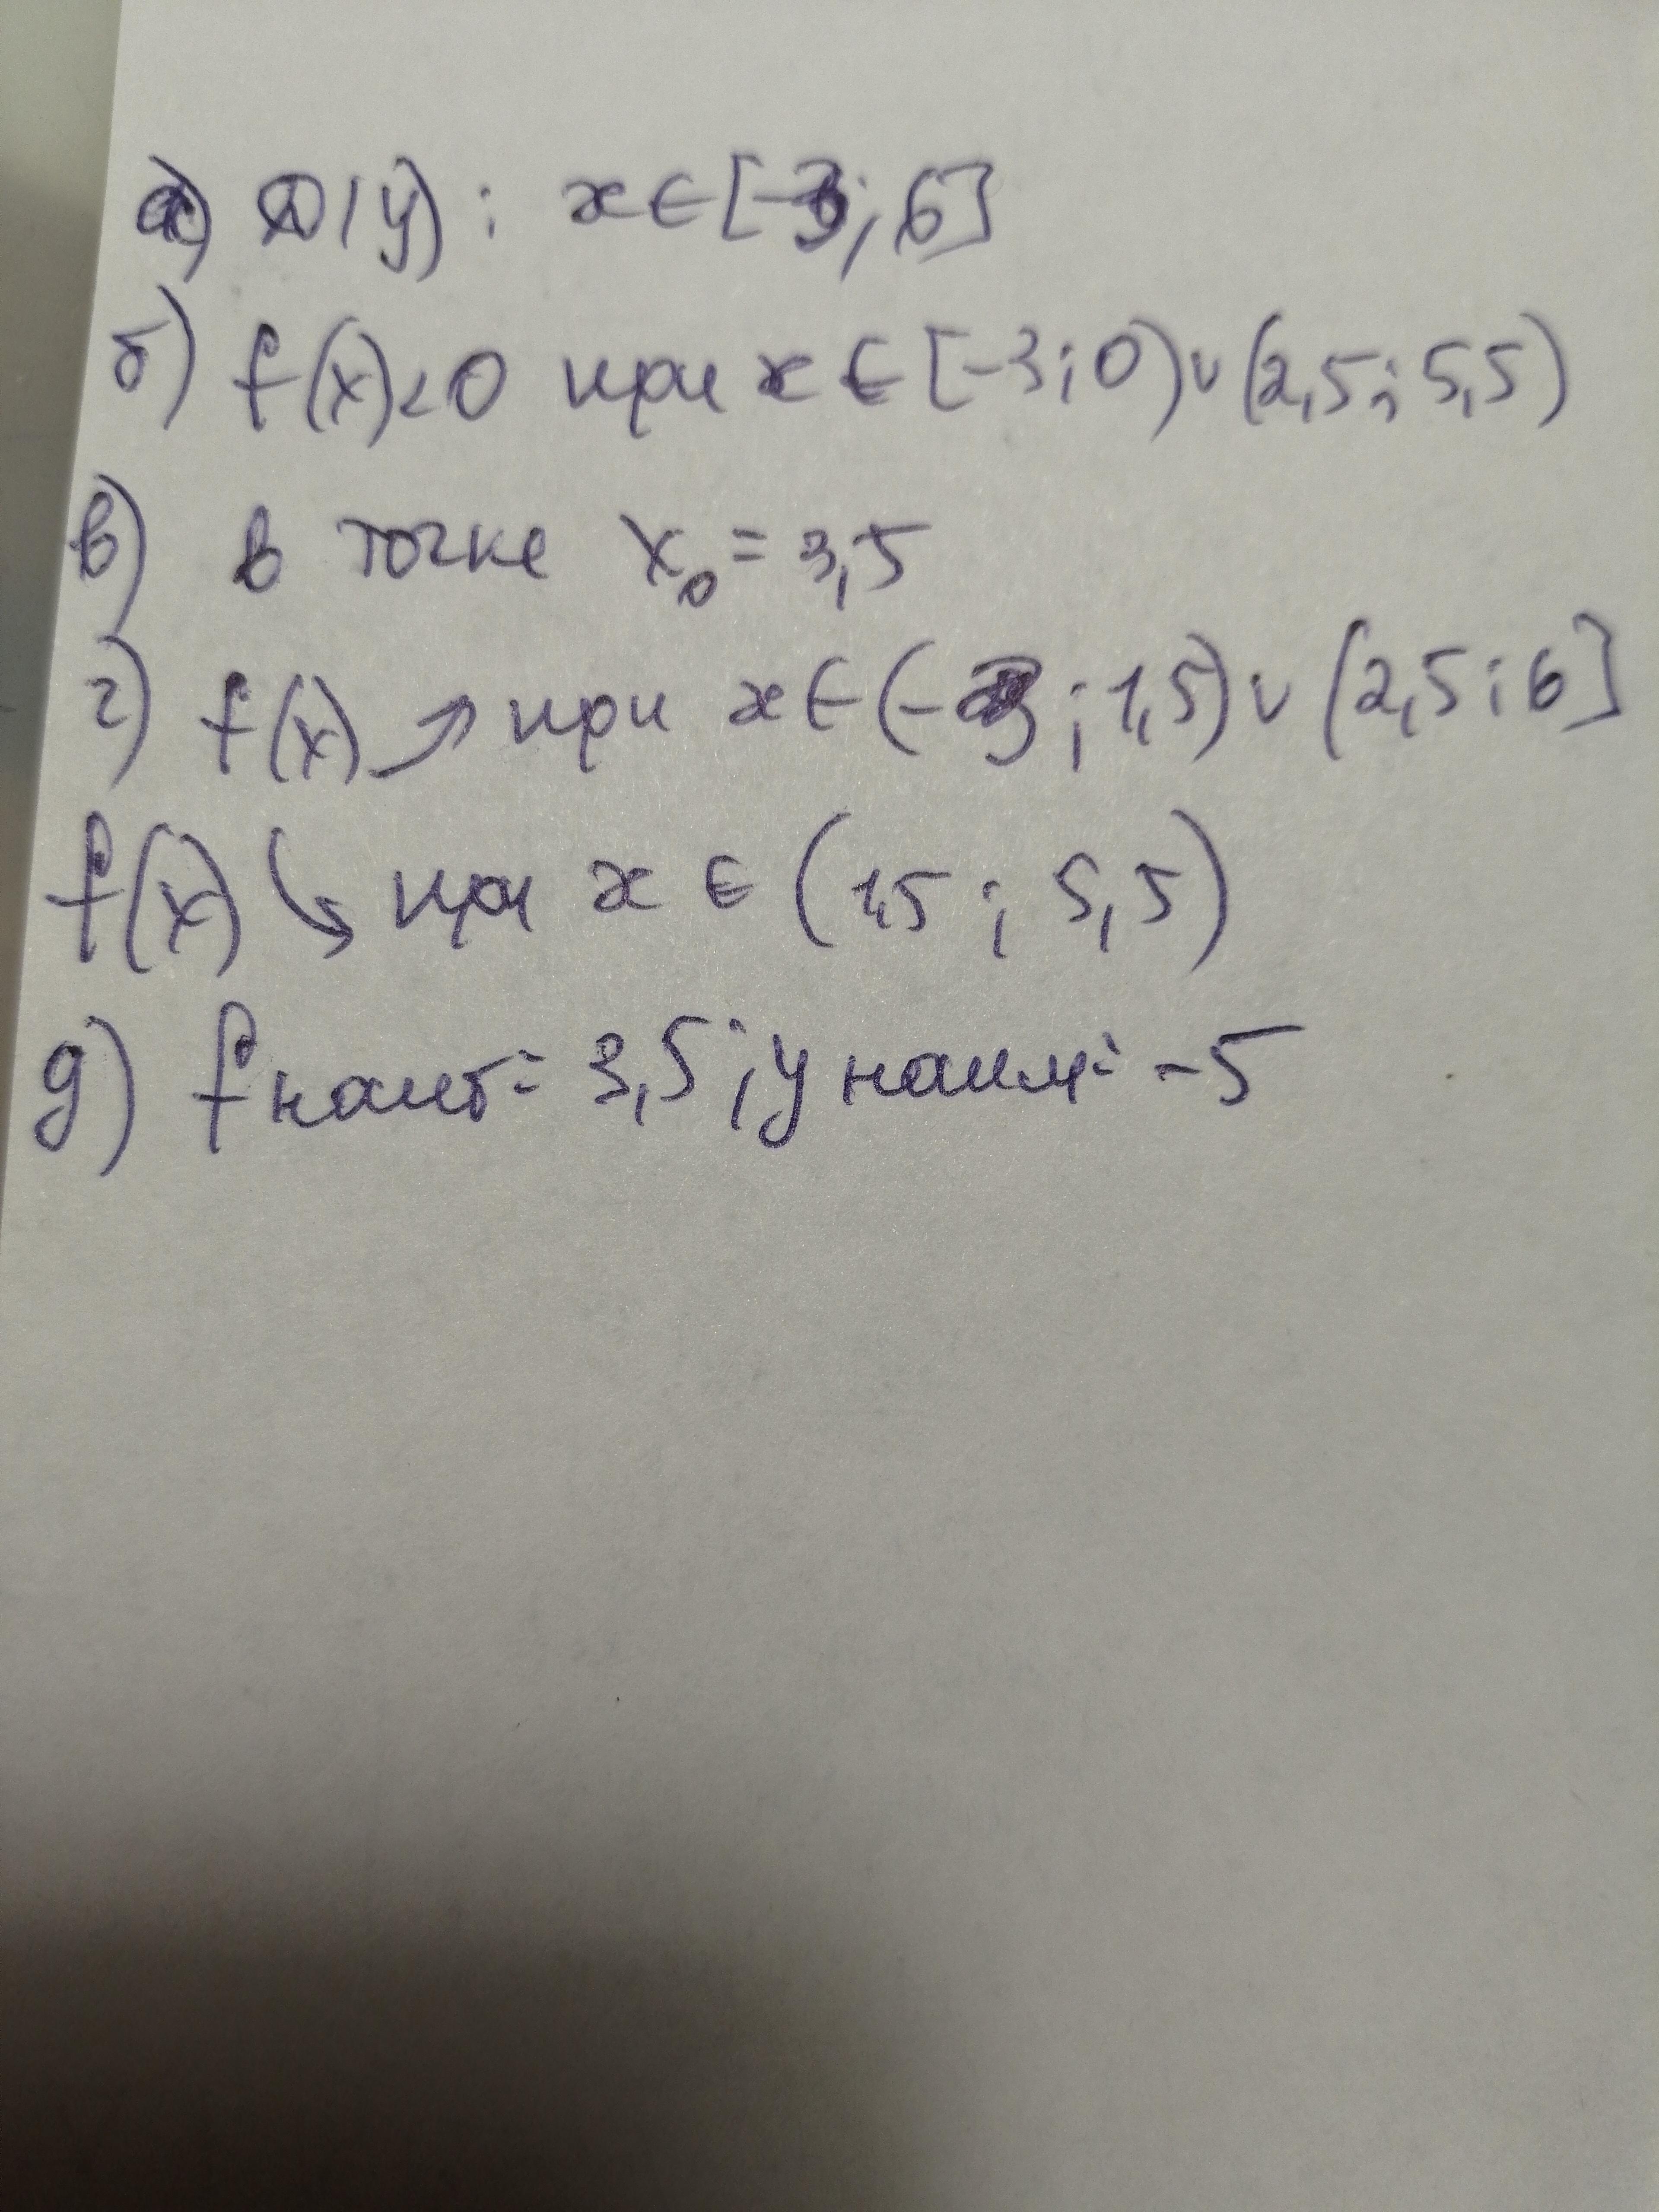 а) D(y): x∈[-3; 6]
б) f(x)<0 при x∈[-3; 0)∪(2,5; 5,5)
в) в точке x₀=3,5
г) f(x)↗ при x∈(-3; 1,5)∪(2,5; 6]
f(x)↘ при x∈(1,5; 5,5)
д) f наиб= 3,5; y наим= -5